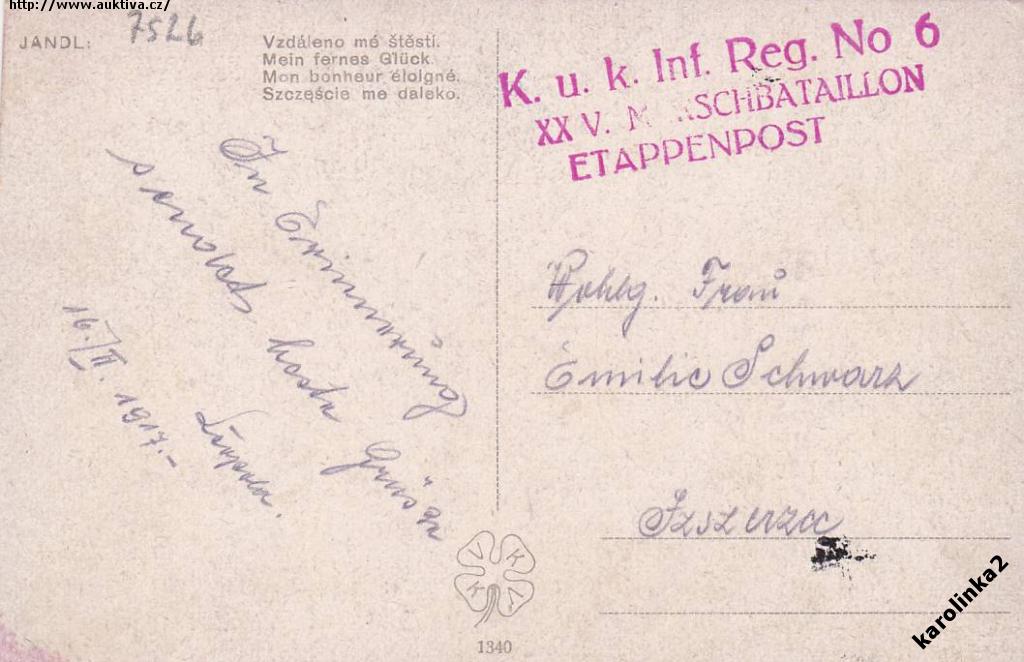 http://www.auktiva.cz/
JANDL:
7526
Vzdáleno mé štěstí.
Mein fernes Glück.
Mon bonheur éloigné.
Szczęście me daleko.
K. u. k. Inf. Reg. No 6
XXV. M SCHBATAILLON
ETAPPENPOST
In Erinnerung
sendet beste Grüße
16./II. 1917.-
Wohlg. Frau
Emilie Schwarz
V K K A
1340
karolinka2